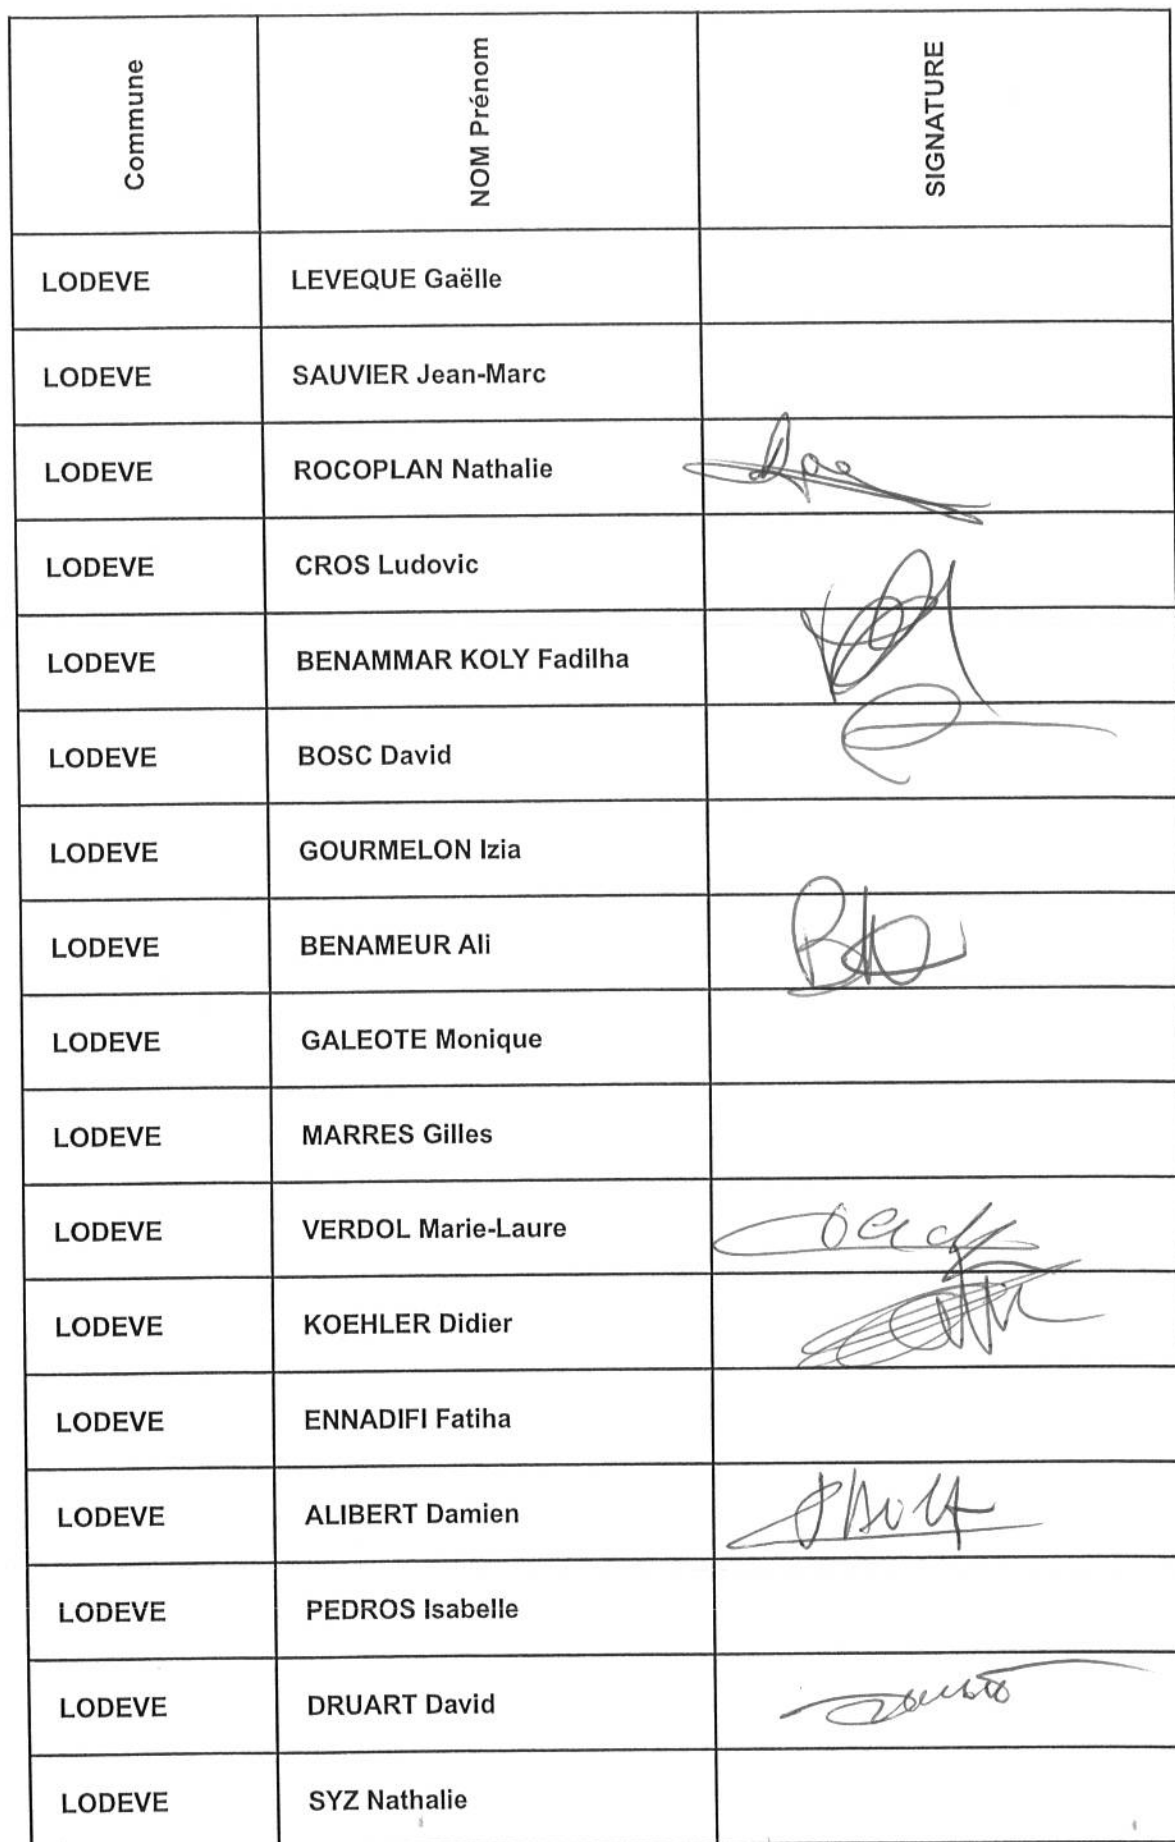 Commune NOM Prénom SIGNATURE
LODEVE LEVEQUE Gaëlle
LODEVE SAUVIER Jean-Marc
LODEVE ROCOPLAN Nathalie
LODEVE CROS Ludovic
LODEVE BENAMMAR KOLY Fadilha
LODEVE BOSC David
LODEVE GOURMELON Izia
LODEVE BENAMEUR Ali
LODEVE GALEOTE Monique
LODEVE MARRES Gilles
LODEVE VERDOL Marie-Laure
LODEVE KOEHLER Didier
LODEVE ENNADIFI Fatiha
LODEVE ALIBERT Damien
LODEVE PEDROS Isabelle
LODEVE DRUART David
LODEVE SYZ Nathalie